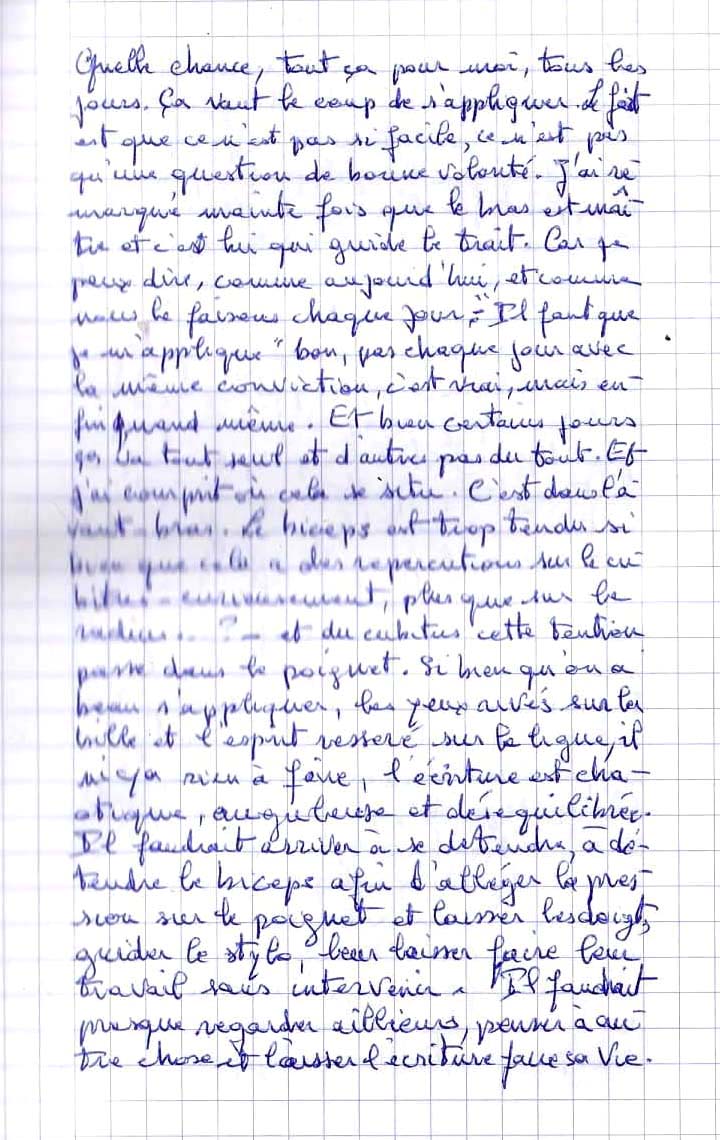 Quelle chance, tout ça pour moi, tous les
jours. Ça vaut le coup de s'appliquer. Le fait
est que ce n'est pas si facile, ce n'est pas
qu'une question de bonne volonté. J'ai re
marqué mainte fois que le bras est maî
tre et c'est lui qui guide le trait. Car je
peux dire, comme aujourd'hui, et comme
nous le faisons chaque jour : "Il faut que
je m'applique" bon, pas chaque jour avec
la même conviction, c'est vrai, mais en-
fin quand même. Et bien certains jours
ça va tout seul et d'autres pas du tout. Et
j'ai comprit où cela se situ. C'est dans l'a
vant-bras. Le biceps est trop tendu si
bien que cela a des repercutions sur le cu
bitus - curieusement, plus que sur le
radius.. ? - et du cubitus cette tention
passe dans le poignet. Si bien qu'on a
beau s'appliquer, les yeux rivés sur la
bille et l'esprit resseré sur la ligne, il
ni y a rien à faire, l'écriture est cha-
otique, anguleuse et déséquilibrée.
Il faudrait arriver à se détendre, à dé-
tendre le biceps afin d'alléger la pres-
sion sur le poignet et laisser les doigts
guider le stylo, leur laisser faire leur
travail sans intervenir. Il faudrait
presque regarder aillieurs, penser à au
tre chose et laisser l'écriture faire sa vie.